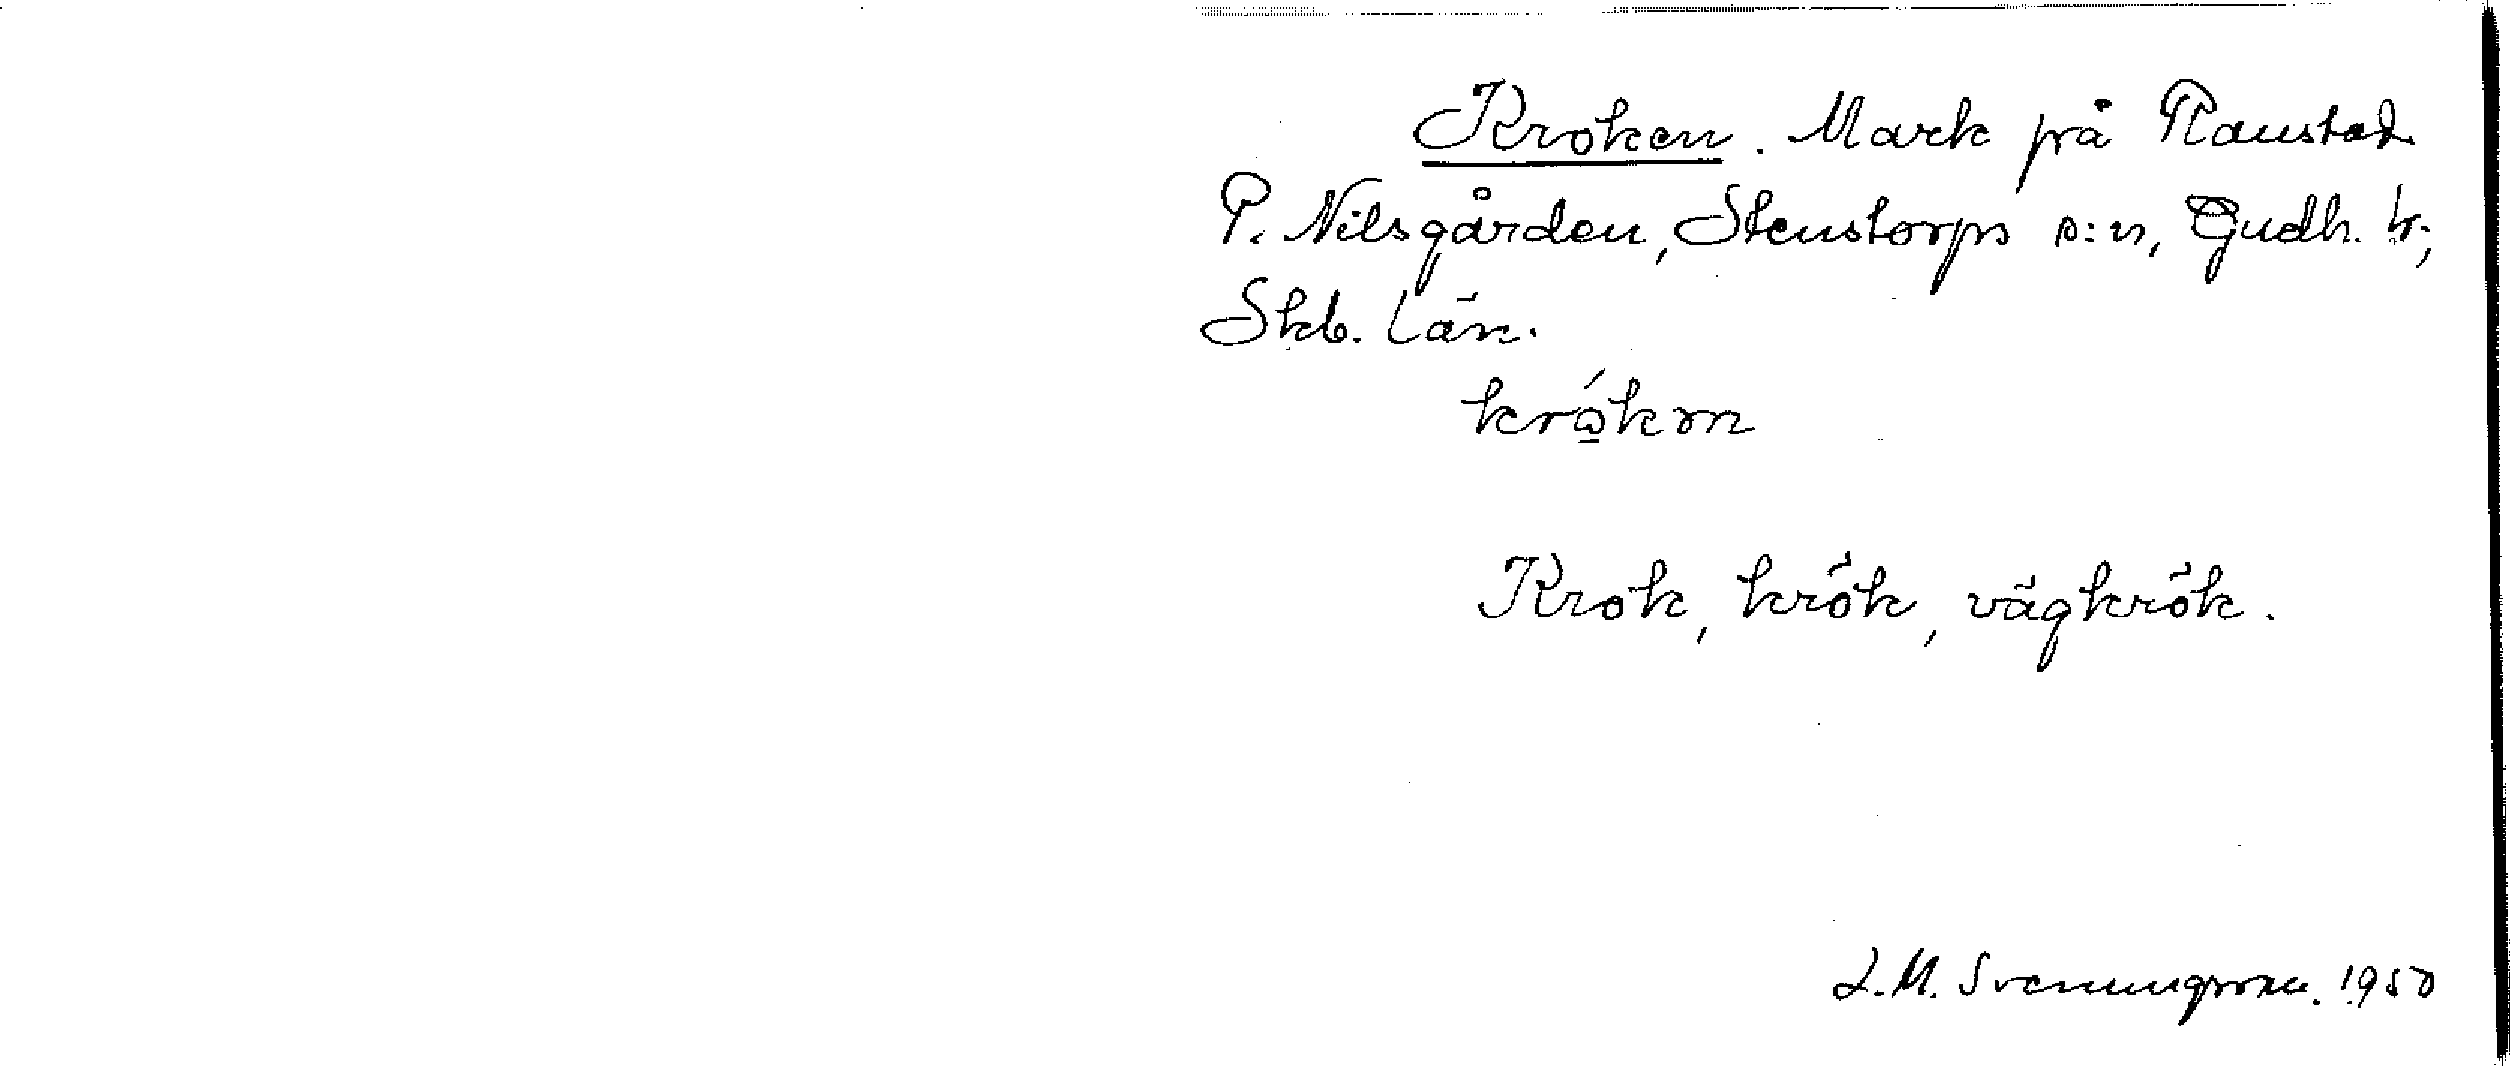 Kroken. Mark på Ranstad
P. Nilsgården, Stenstorps s:n, Gudh. hr;
Skb. län.
krókon
Krok, krök, vägkrök.
L.M. Svenungsson. 1950